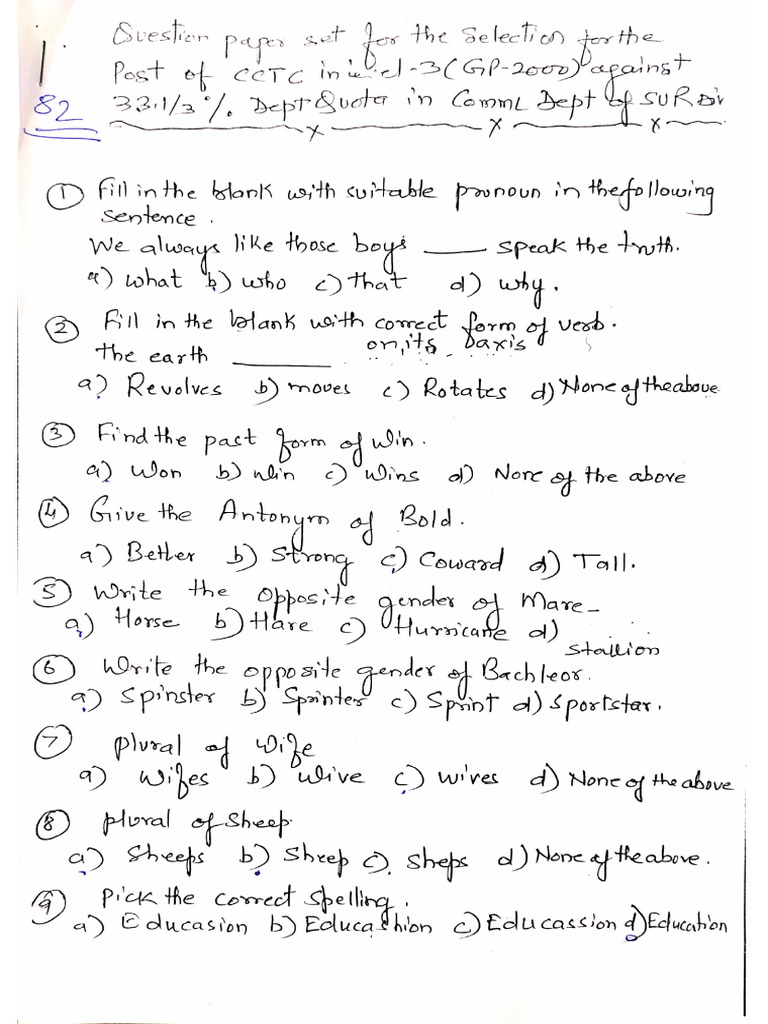 1.
82
Question paper set for the Selection for the
Post of CCTC in level-3 (GP-2000) against
33.1/3 %. Dept Quota in Comml Dept of SUR Div
① Fill in the blank with suitable pronoun in the following
sentence.
We always like those boys ____ speak the truth.
a) what b) who c) that d) why.
② Fill in the blank with correct form of verb.
The earth ________ on, its axis
a) Revolves b) moves c) Rotates d) None of the above
③ Find the past form of win.
a) Won b) win c) Wins d) None of the above
④ Give the Antonym of Bold.
a) Better b) Strong c) Coward d) Tall.
⑤ Write the opposite gender of Mare-
a) Horse b) Hare c) Hurricane d) Stallion
⑥ Write the opposite gender of Bachleor.
a) Spinster b) Sprinter c) Sprint d) Sportstar.
⑦ Plural of Wife
a) Wifes b) wive c) wives d) None of the above
⑧ Plural of Sheep.
a) Sheeps b) Sheep c). Sheps d) None of the above.
⑨ Pick the correct spelling.
a) Educasion b) Educashion c) Educassion d) Education